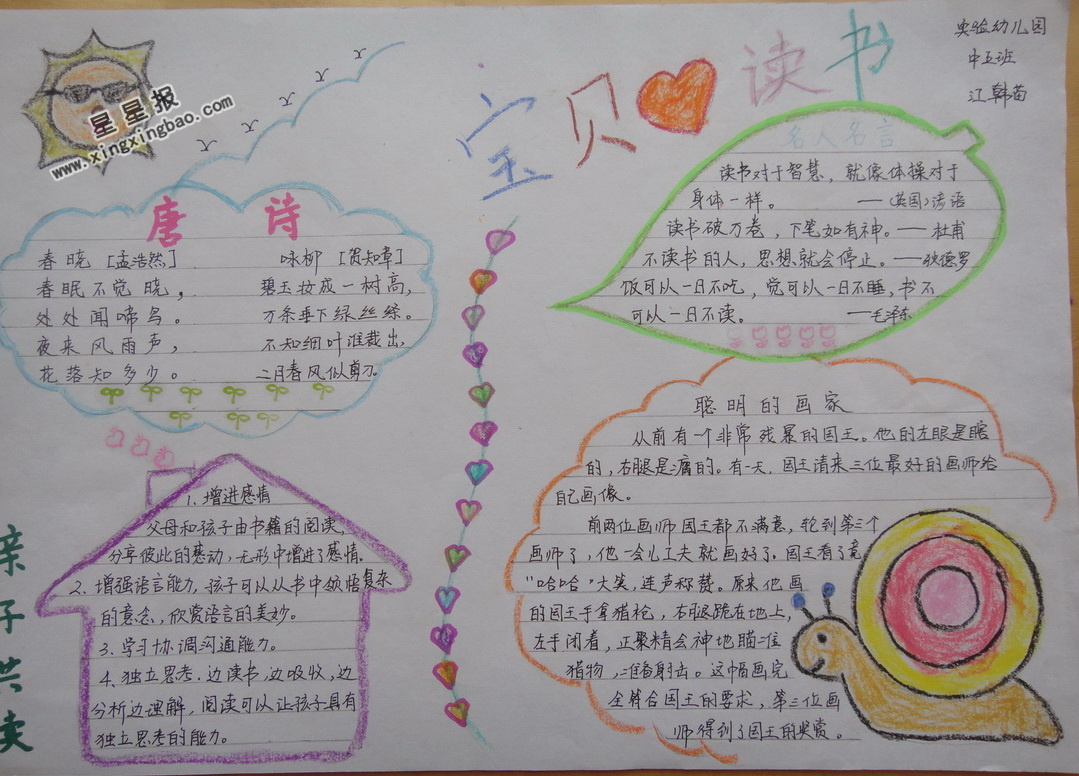 宝贝读书
实验幼儿园
中五班
江韩苗
星星报
www.xingxingbao.com
唐诗
春晓 [孟浩然]
春眠不觉晓，
处处闻啼鸟。
夜来风雨声，
花落知多少。
咏柳 [贺知章]
碧玉妆成一树高，
万条垂下绿丝绦。
不知细叶谁裁出，
二月春风似剪刀
名人名言
读书对于智慧，就像体操对于
身体一样。 ——（英国）谚语
读书破万卷，下笔如有神。——杜甫
不读书的人，思想就会停止。——狄德罗
饭可以一日不吃，觉可以一日不睡，书不
可以一日不读。 ——毛泽东
亲子共读
1. 增进感情
父母和孩子由书籍的阅读，
分享彼此的感动，无形中增进了感情.
2. 增强语言能力，孩子可以从书中领悟复杂
的意念、欣赏语言的美妙。
3. 学习协调沟通能力。
4. 独立思考. 边读书，边吸收，边
分析边理解，阅读可以让孩子具有
独立思考的能力。
聪明的画家
从前有一个非常残暴的国王。他的左眼是瞎
的，右腿是瘸的。有一天，国王请来三位最好的画师给
自己画像。
前两位画师国王都不满意，轮到第三个
画师了，他一会儿工夫就画好了。国王看了竟
“哈哈”大笑，连声称赞。原来他画
的国王手拿猎枪，右腿跪在地上，
左手闭着，正聚精会神地瞄准
猎物，准备射击。这幅画完
全符合国王的要求，第三位画
师得到了国王的奖赏。